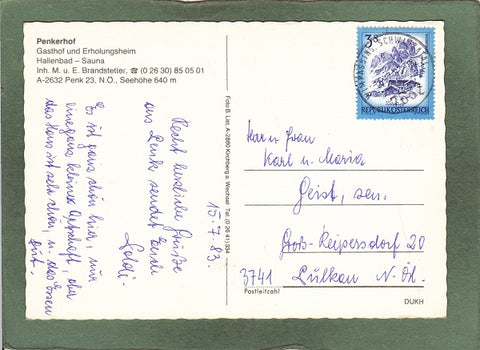 Penkerhof
Gasthof und Erholungsheim
Hallenbad – Sauna
Inh. M. u. E. Brandstetter, ☎ (0 26 30) 85 05 01
A-2632 Penk 23, N.Ö., Seehöhe 640 m
15.7.83.
Recht herzliche Grüße
aus Penk sendet Euch
Poldi.
Es ist ganz schön hier, nur
eine ganz kleine Ortschaft, aber
das Haus ist sehr schön, u. das Essen
gut.
Foto B. Lier, A-2880 Kirchberg a. Wechsel · Tel. (0 26 41) 334
3 S
REPUBLIK ÖSTERREICH
Herrn Frau
Karl u. Maria
Geist, sen.
Groß-Reipersdorf 20
3741 Pulkau N. Öst.
Postleitzahl
DUKH